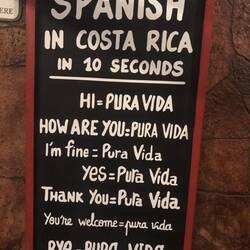 ERE
SPANISH
IN COSTA RICA
IN 10 SECONDS
HI = PURA VIDA
HOW ARE YOU = PURA VIDA
I'm fine = Pura Vida
YES = Pura Vida
THANK YOU = Pura Vida
You're welcome = pura vida
BYE = PURA VIDA